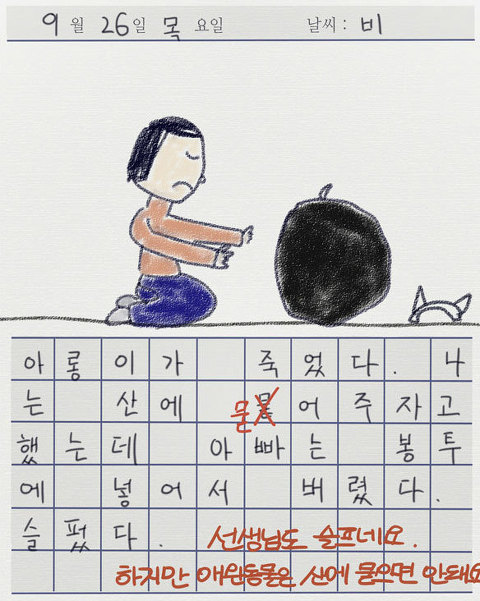 9월 26일 목요일 날씨: 비
아롱이가 죽었다. 나
는 산에 묻어주자고
했는데 아빠는 봉투
에 넣어서 버렸다.
슬펐다.
선생님도 슬프네요.
하지만 애완동물은 산에 묻으면 안돼요